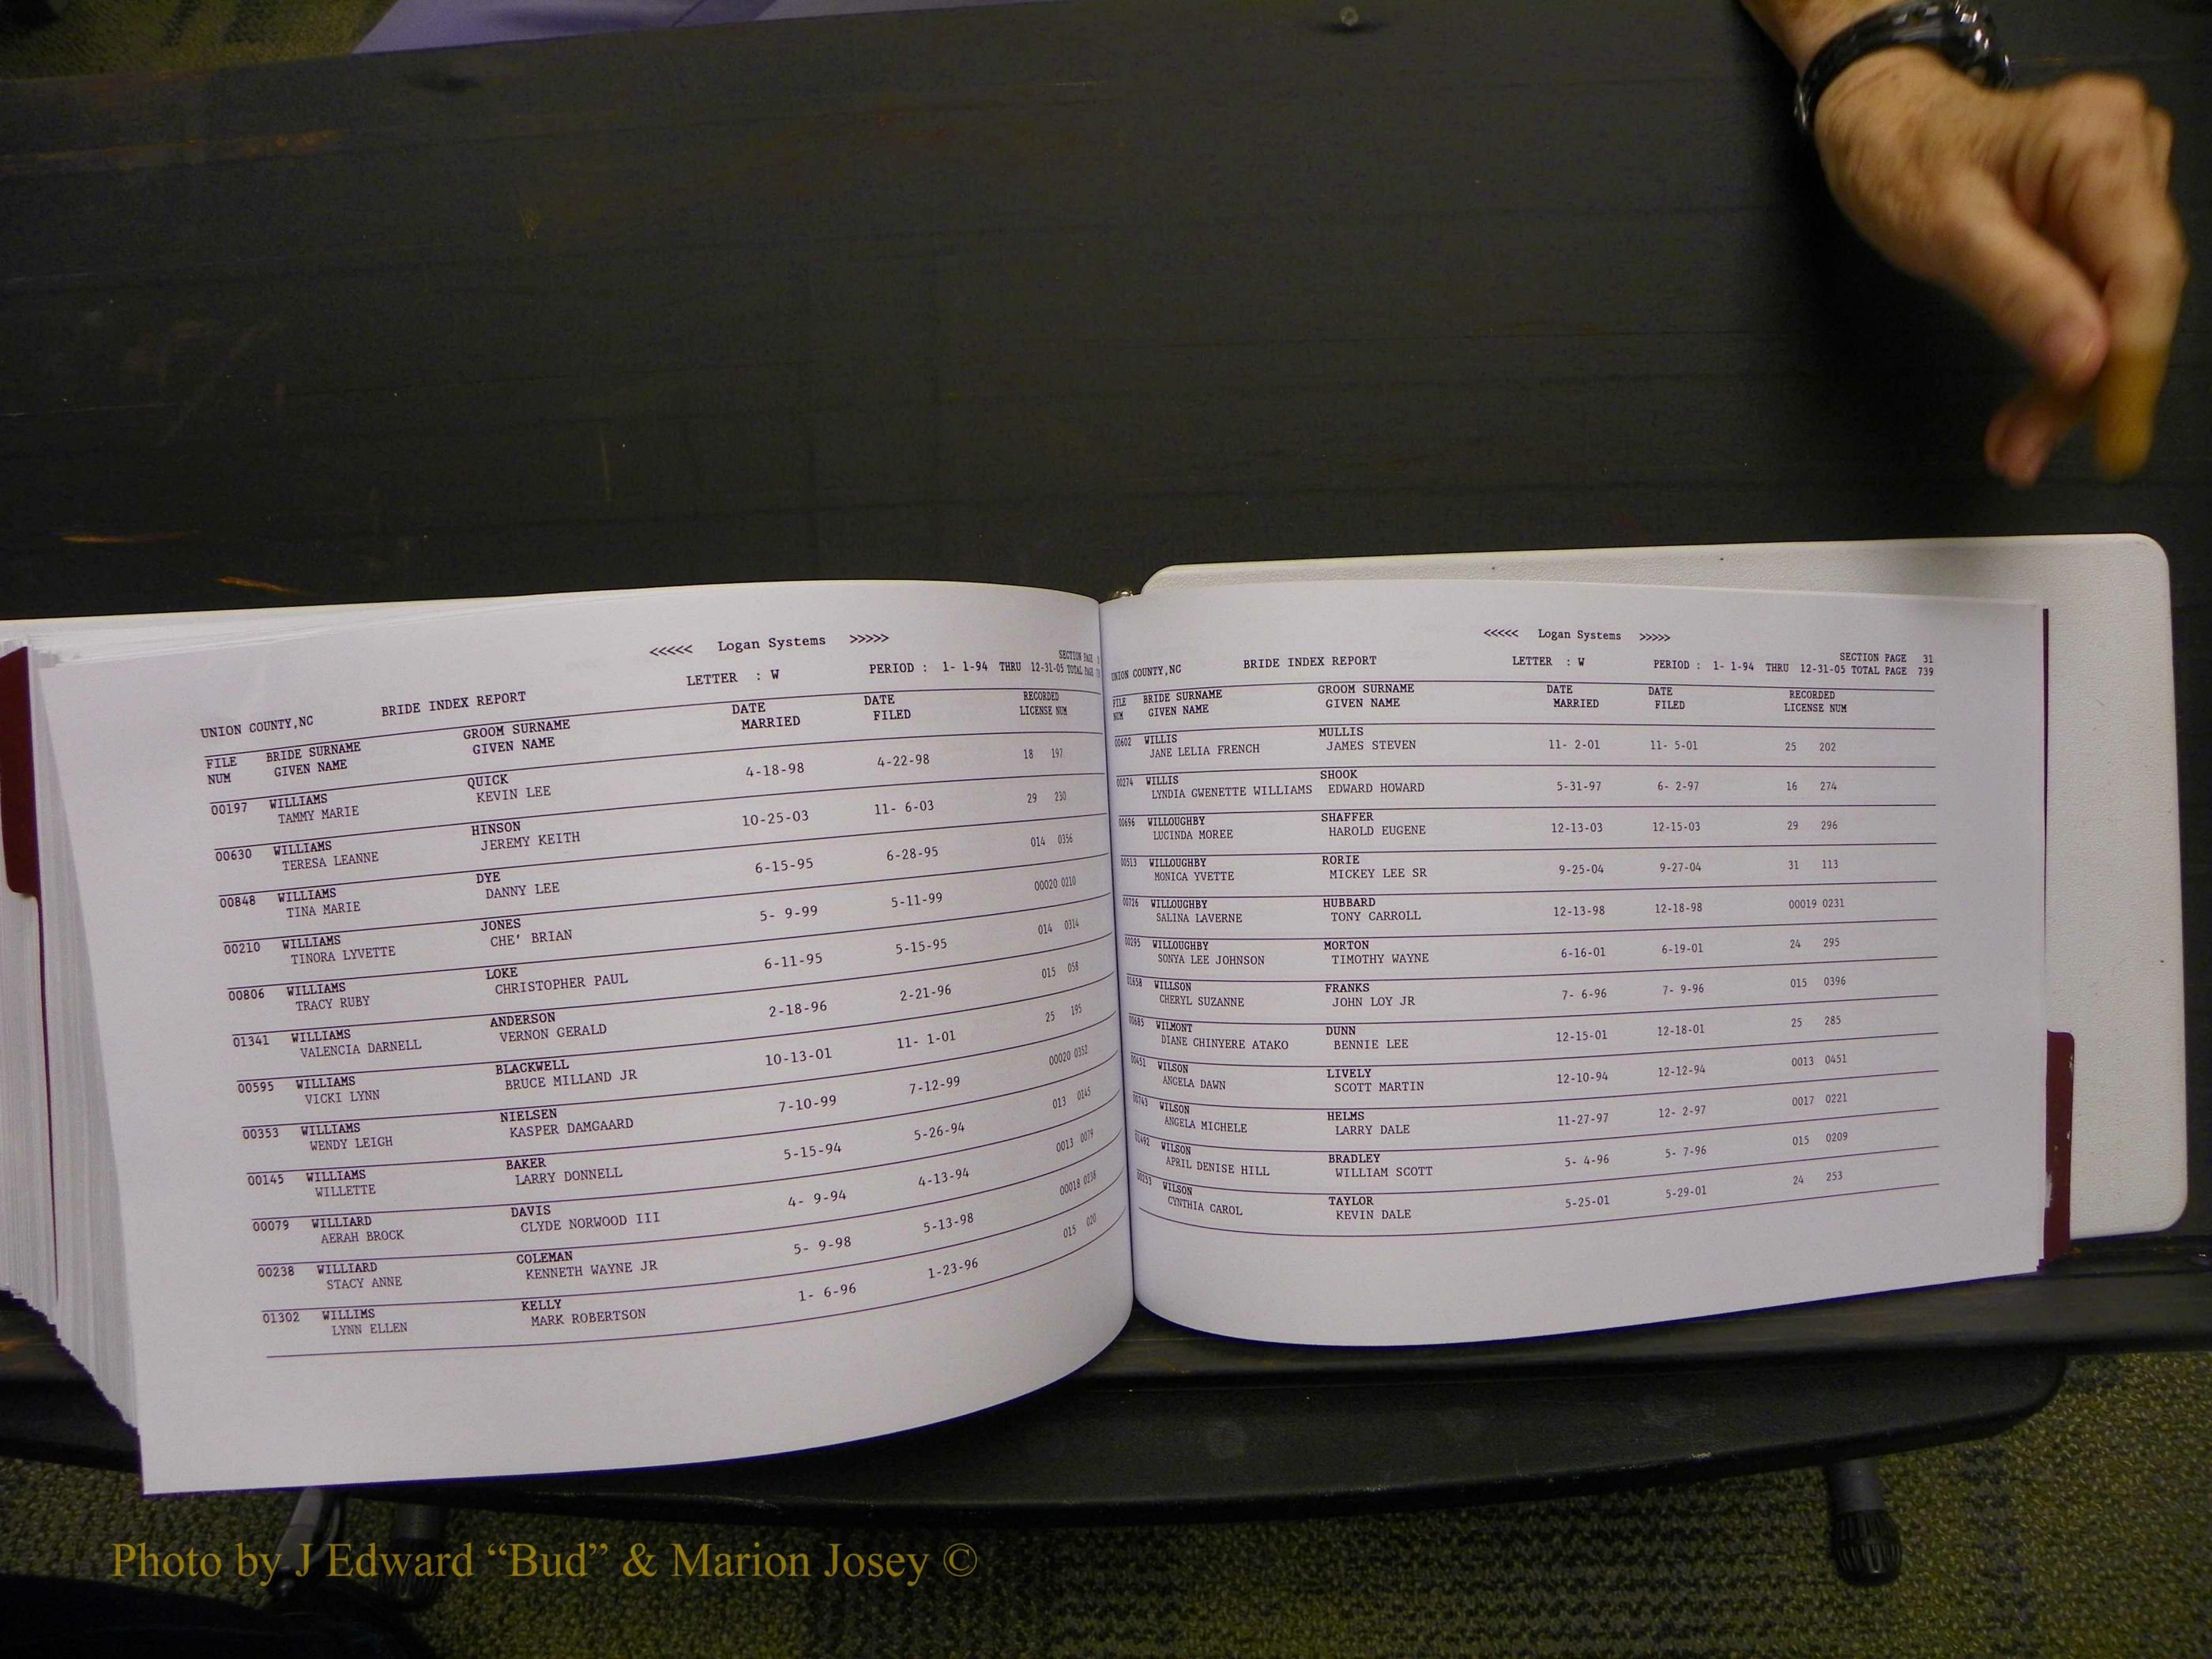 <<<<< Logan Systems >>>>>
SECTION PAGE
UNION COUNTY,NC BRIDE INDEX REPORT LETTER : W PERIOD : 1- 1-94 THRU 12-31-05 TOTAL PAGE
FILE BRIDE SURNAME GROOM SURNAME DATE DATE RECORDED
NUM GIVEN NAME GIVEN NAME MARRIED FILED LICENSE NUM
00197 WILLIAMS QUICK 4-18-98 4-22-98 18 197
TAMMY MARIE KEVIN LEE
00630 WILLIAMS HINSON 10-25-03 11- 6-03 29 230
TERESA LEANNE JEREMY KEITH
00848 WILLIAMS DYE 6-15-95 6-28-95 014 0356
TINA MARIE DANNY LEE
00210 WILLIAMS JONES 5- 9-99 5-11-99 00020 0210
TINORA LYVETTE CHE' BRIAN
00806 WILLIAMS LOKE 6-11-95 5-15-95 014 0314
TRACY RUBY CHRISTOPHER PAUL
01341 WILLIAMS ANDERSON 2-18-96 2-21-96 015 058
VALENCIA DARNELL VERNON GERALD
00595 WILLIAMS BLACKWELL 10-13-01 11- 1-01 25 195
VICKI LYNN BRUCE MILLAND JR
00353 WILLIAMS NIELSEN 7-10-99 7-12-99 00020 0352
WENDY LEIGH KASPER DAMGAARD
00145 WILLIAMS BAKER 5-15-94 5-26-94 013 0145
WILLETTE LARRY DONNELL
00079 WILLIARD DAVIS 4- 9-94 4-13-94 0013 0079
AERAH BROCK CLYDE NORWOOD III
00238 WILLIARD COLEMAN 5- 9-98 5-13-98 00018 0238
STACY ANNE KENNETH WAYNE JR
01302 WILLIMS KELLY 1- 6-96 1-23-96 015 020
LYNN ELLEN MARK ROBERTSON
<<<<< Logan Systems >>>>>
SECTION PAGE 31
UNION COUNTY,NC BRIDE INDEX REPORT LETTER : W PERIOD : 1- 1-94 THRU 12-31-05 TOTAL PAGE 739
FILE BRIDE SURNAME GROOM SURNAME DATE DATE RECORDED
NUM GIVEN NAME GIVEN NAME MARRIED FILED LICENSE NUM
00602 WILLIS MULLIS 11- 2-01 11- 5-01 25 202
JANE LELIA FRENCH JAMES STEVEN
00274 WILLIS SHOOK 5-31-97 6- 2-97 16 274
LYNDIA GWENETTE WILLIAMS EDWARD HOWARD
00696 WILLOUGHBY SHAFFER 12-13-03 12-15-03 29 296
LUCINDA MOREE HAROLD EUGENE
00513 WILLOUGHBY RORIE 9-25-04 9-27-04 31 113
MONICA YVETTE MICKEY LEE SR
00726 WILLOUGHBY HUBBARD 12-13-98 12-18-98 00019 0231
SALINA LAVERNE TONY CARROLL
00295 WILLOUGHBY MORTON 6-16-01 6-19-01 24 295
SONYA LEE JOHNSON TIMOTHY WAYNE
01658 WILLSON FRANKS 7- 6-96 7- 9-96 015 0396
CHERYL SUZANNE JOHN LOY JR
00685 WILMONT DUNN 12-15-01 12-18-01 25 285
DIANE CHINYERE ATAKO BENNIE LEE
00451 WILSON LIVELY 12-10-94 12-12-94 0013 0451
ANGELA DAWN SCOTT MARTIN
00743 WILSON HELMS 11-27-97 12- 2-97 0017 0221
ANGELA MICHELE LARRY DALE
01492 WILSON BRADLEY 5- 4-96 5- 7-96 015 0209
APRIL DENISE HILL WILLIAM SCOTT
00253 WILSON TAYLOR 5-25-01 5-29-01 24 253
CYNTHIA CAROL KEVIN DALE
Photo by J Edward “Bud” & Marion Josey ©